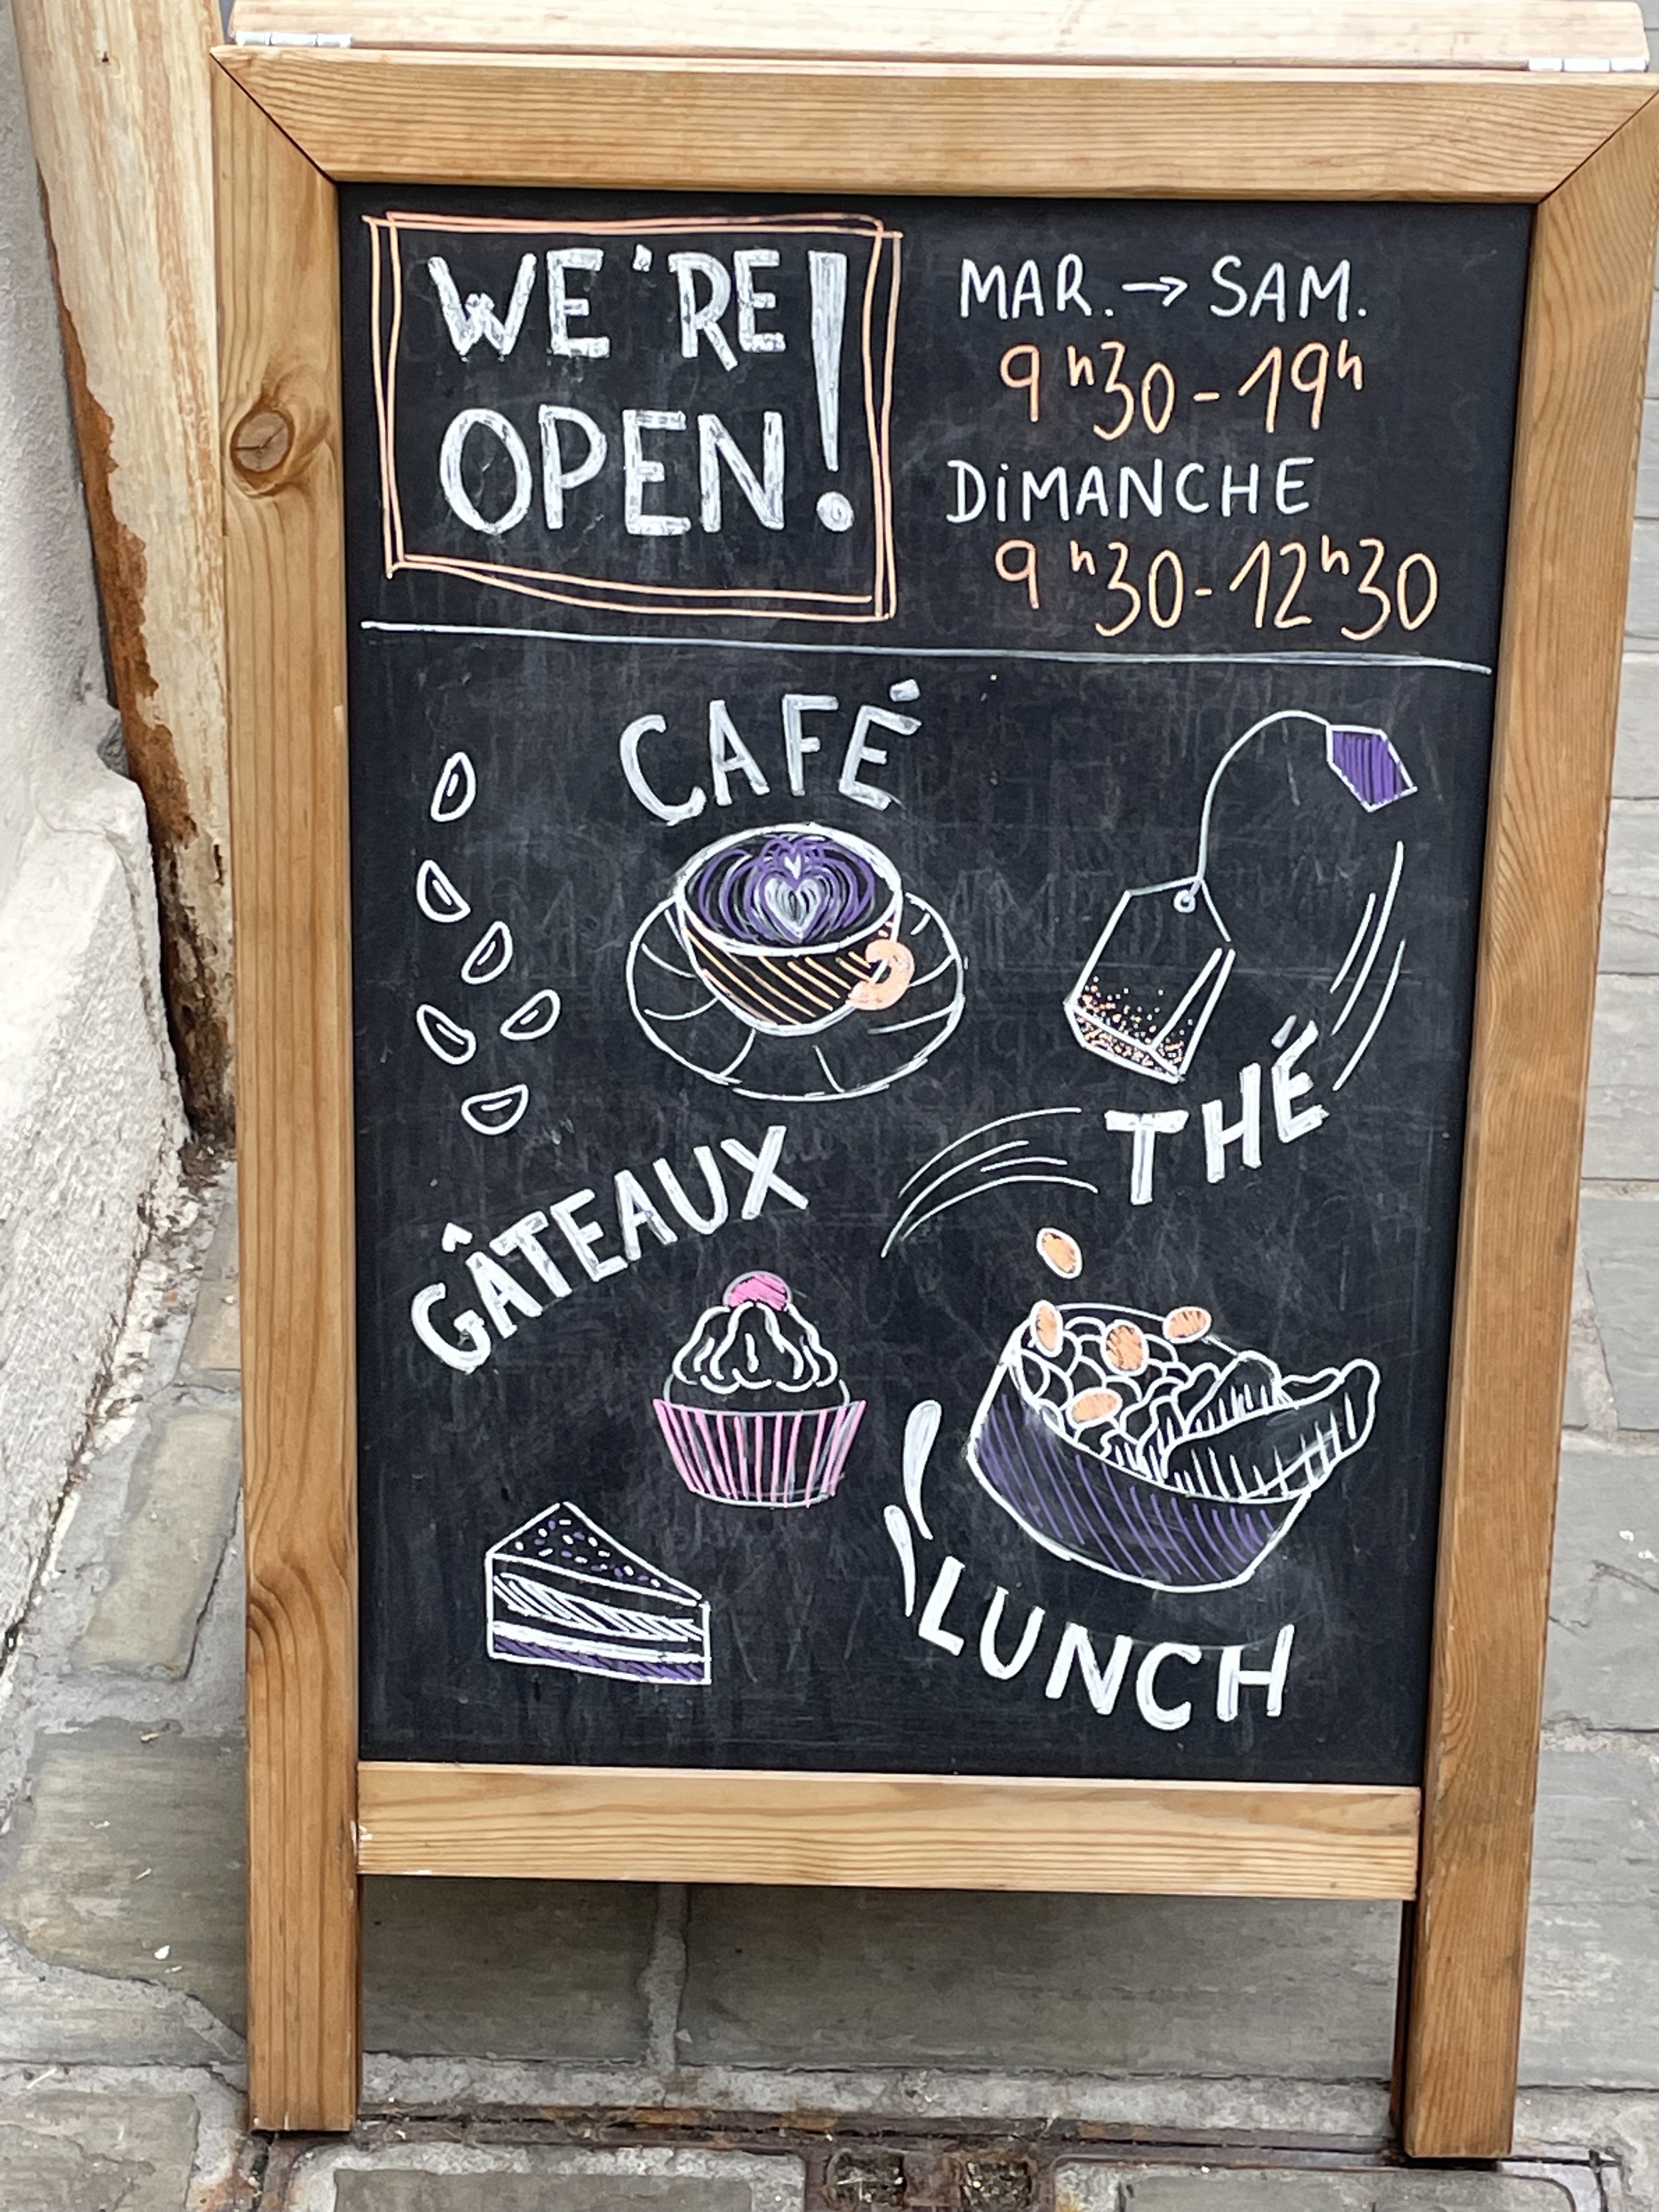 WE'RE
OPEN!
MAR. → SAM.
9h30 - 19h
DiMANCHE
9h30 - 12h30
CAFÉ
THÉ
GÂTEAUX
LUNCH